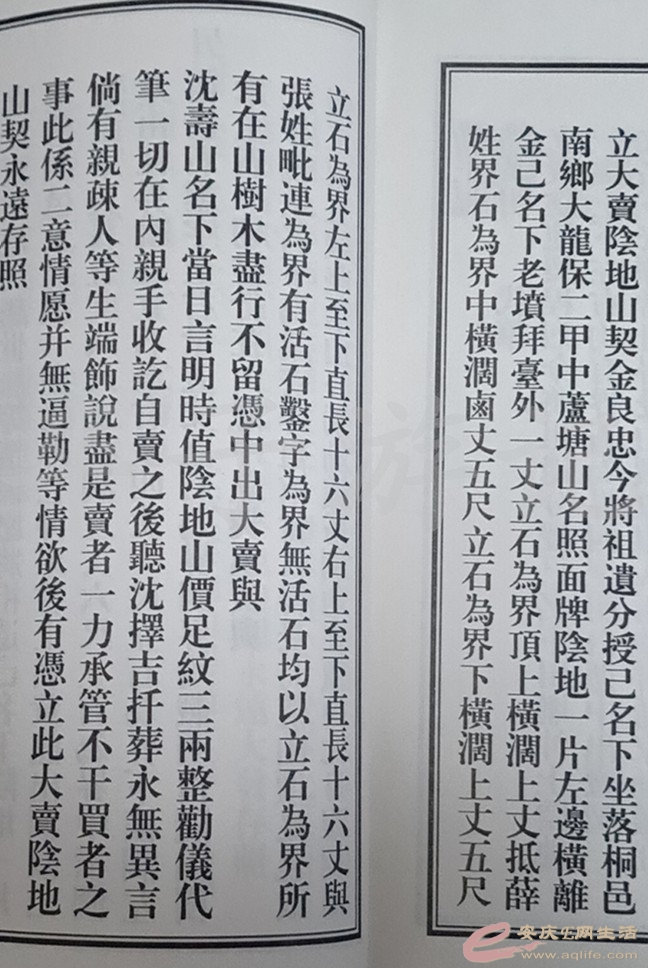 立大賣陰地山契金良忠今將祖遺分授己名下坐落桐邑
南鄉大龍保二甲中蘆塘山名照面牌陰地一片左邊橫離
金己名下老墳拜臺外一丈立石為界頂上橫濶上丈抵薛
姓界石為界中橫濶鹵丈五尺立石為界下橫濶上丈五尺
立石為界左上至下直長十六丈右上至下直長十六丈與
張姓毗連為界有活石鑿字為界無活石均以立石為界所
有在山樹木盡行不留憑中出大賣與
沈壽山名下當日言明時值陰地山價足紋三兩整勸儀代
筆一切在內親手收訖自賣之後聽沈擇吉扦葬永無異言
倘有親疎人等生端飾說盡是賣者一力承管不干買者之
事此係二意情愿并無逼勒等情欲後有憑立此大賣陰地
山契永遠存照
安庆E网生活
www.aqlife.com